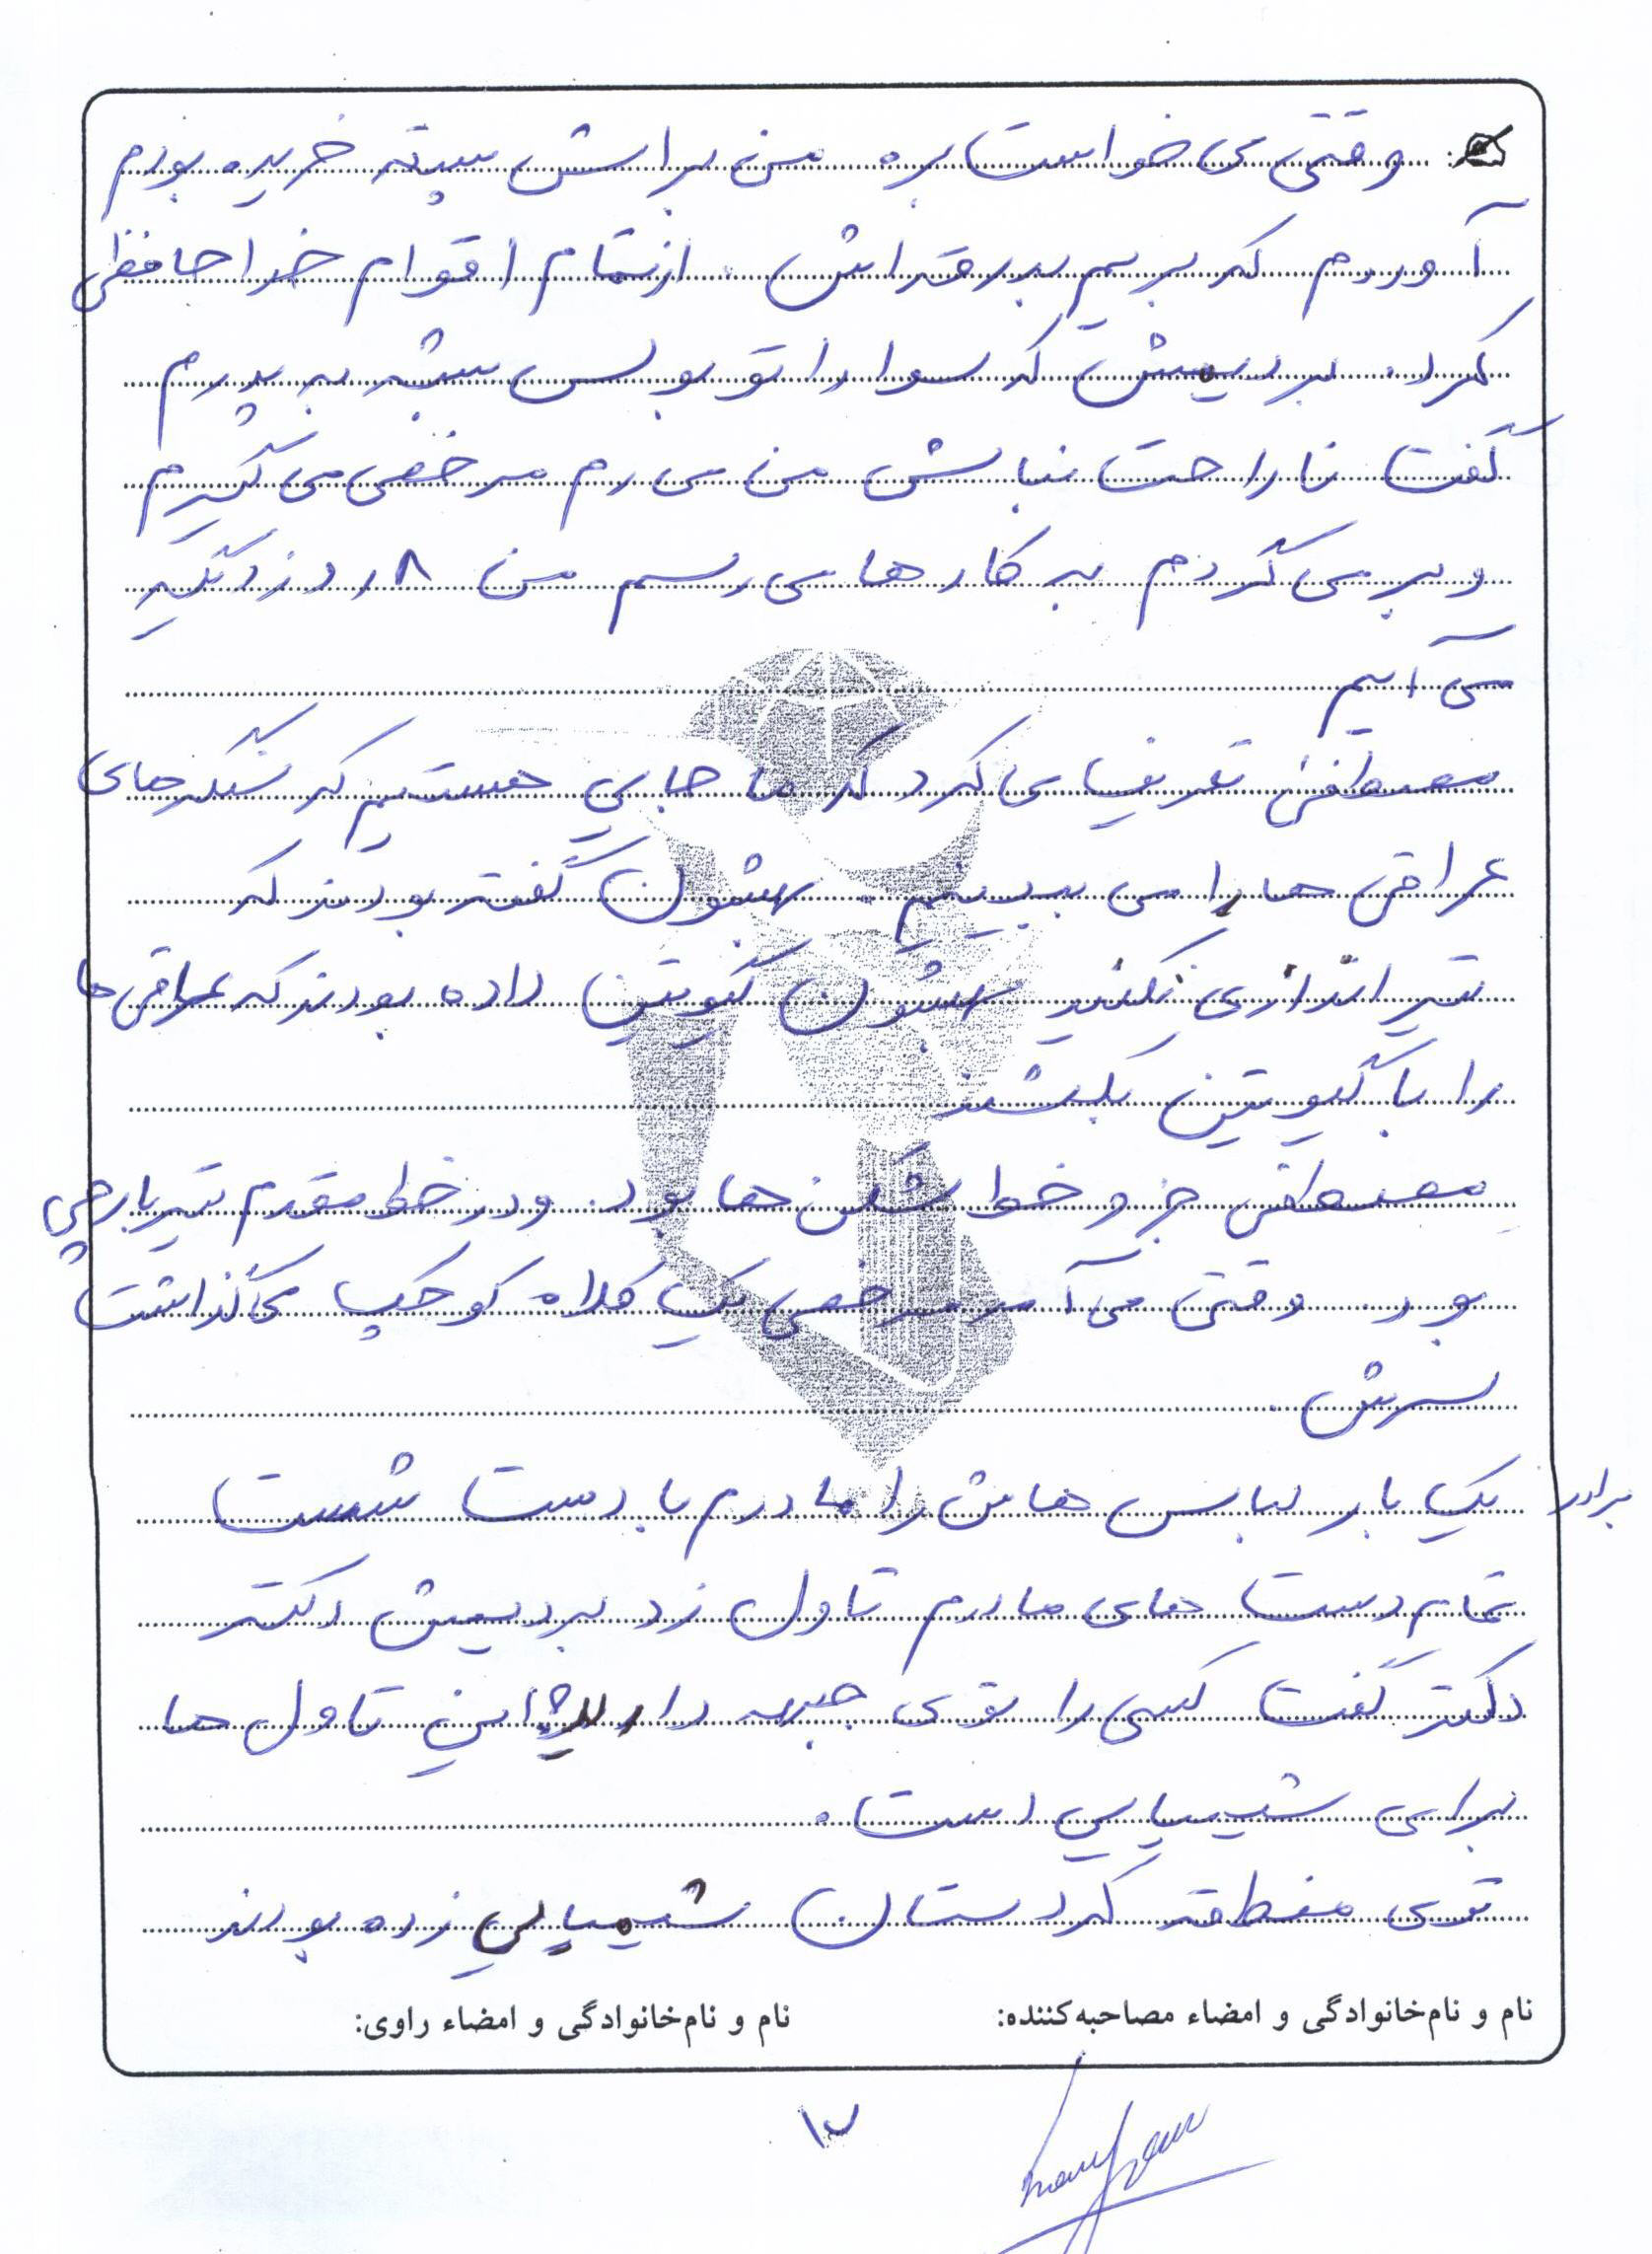 وقتی می خواست بره من براش پسته خریده بودم
آوردم که بریم بدرقه اش . از تمام اقوام خداحافظی
کرد . بردیمش که سوار اتوبوس بشه به پدرم
گفت ناراحت نباش من می رم مرخصی می گیرم
و برمی گردم به کارها می رسم من ۸ روز دیگه
می آیم
مصطفی تعریف می کرد که ما جایی هستیم که سنگرهای
عراقی ها را می بینیم . بهشون گفته بودند که
تیراندازی نکنید بهشون گیوتین داده بودند که عراقی ها
را با گیوتین بکشند
مصطفی جزو خط شکن ها بود . و در خط مقدم تیربارچی
بود . وقتی می آمد مرخصی یک کلاه کوچک می گذاشت
سرش .
برادر یک بار لباس هاش را مادرم با دست شست
تمام دست های مادرم تاول زد بردیمش دکتر
دکتر گفت کسی را توی جبهه دارید این تاول ها
برای شیمیایی است .
توی منطقه کردستان شیمیایی زده بودند
نام و نام‌خانوادگی و امضاء مصاحبه‌کننده: نام و نام‌خانوادگی و امضاء راوی:
۱۷